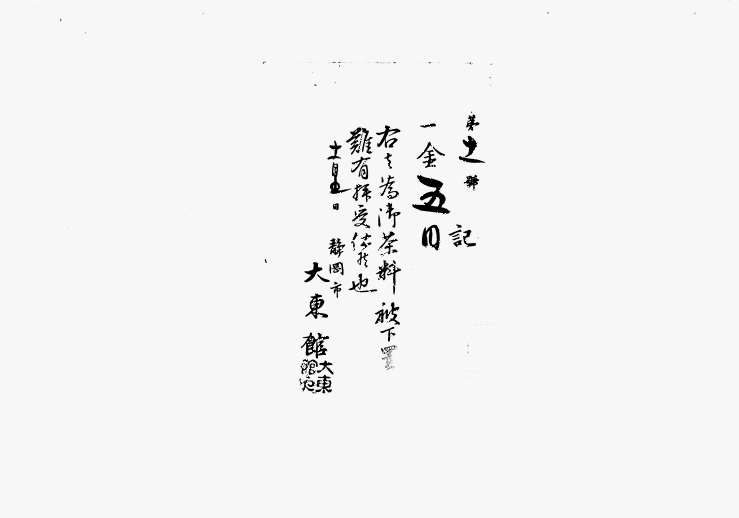 第 号
記
一金五円
右之為御茶料被下置
難有拝受仕候也
十一月 日
静岡市
大東館
大東館